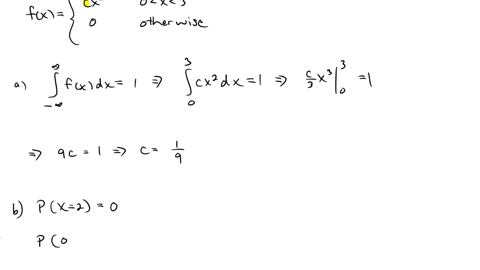 f(x) = { cx 0 < x < 3
0 otherwise
a) ∫_{-∞}^{∞} f(x) dx = 1 ⇒ ∫_0^3 cx² dx = 1 ⇒ c/3 x³ |_0^3 = 1
⇒ 9c = 1 ⇒ c = 1/9
b) P(X=2) = 0
P(0